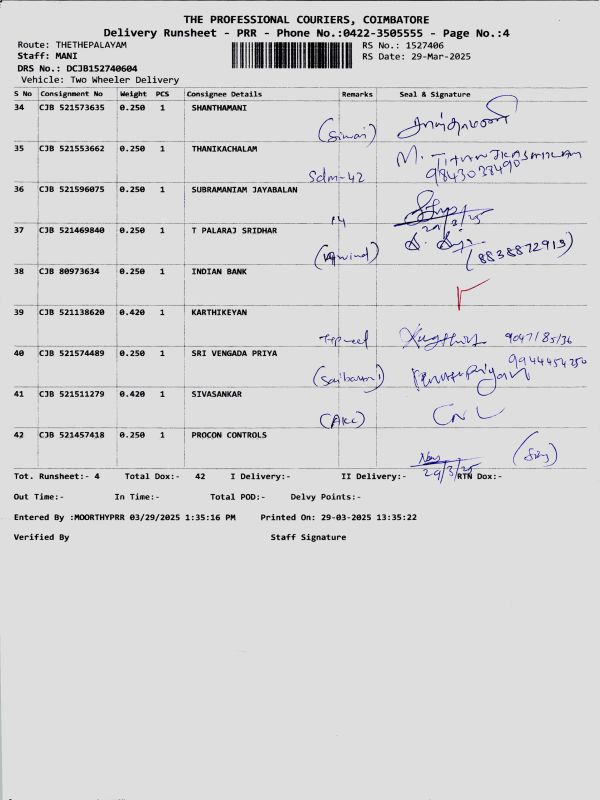 THE PROFESSIONAL COURIERS, COIMBATORE
Delivery Runsheet - PRR - Phone No.:0422-3505555 - Page No.:4
Route: THETHEPALAYAM RS No.: 1527406
Staff: MANI RS Date: 29-Mar-2025
DRS No.: DCJB152740604
Vehicle: Two Wheeler Delivery
S No Consignment No Weight PCS Consignee Details Remarks Seal & Signature
34 CJB 521573635 0.250 1 SHANTHAMANI
35 CJB 521553662 0.250 1 THANIKACHALAM
Sdm-42 9843033490
36 CJB 521596075 0.250 1 SUBRAMANIAM JAYABALAN
37 CJB 521469840 0.250 1 T PALARAJ SRIDHAR
(8838872913)
38 CJB 80973634 0.250 1 INDIAN BANK
39 CJB 521138620 0.420 1 KARTHIKEYAN
9047185136
40 CJB 521574489 0.250 1 SRI VENGADA PRIYA
(Saibaba) 9944454250
41 CJB 521511279 0.420 1 SIVASANKAR
(AKC) CNL
42 CJB 521457418 0.250 1 PROCON CONTROLS
29/3/25
Tot. Runsheet:- 4 Total Dox:- 42 I Delivery:- II Delivery:- RTN Dox:-
Out Time:- In Time:- Total POD:- Delvy Points:-
Entered By :MOORTHYPRR 03/29/2025 1:35:16 PM Printed On: 29-03-2025 13:35:22
Verified By Staff Signature